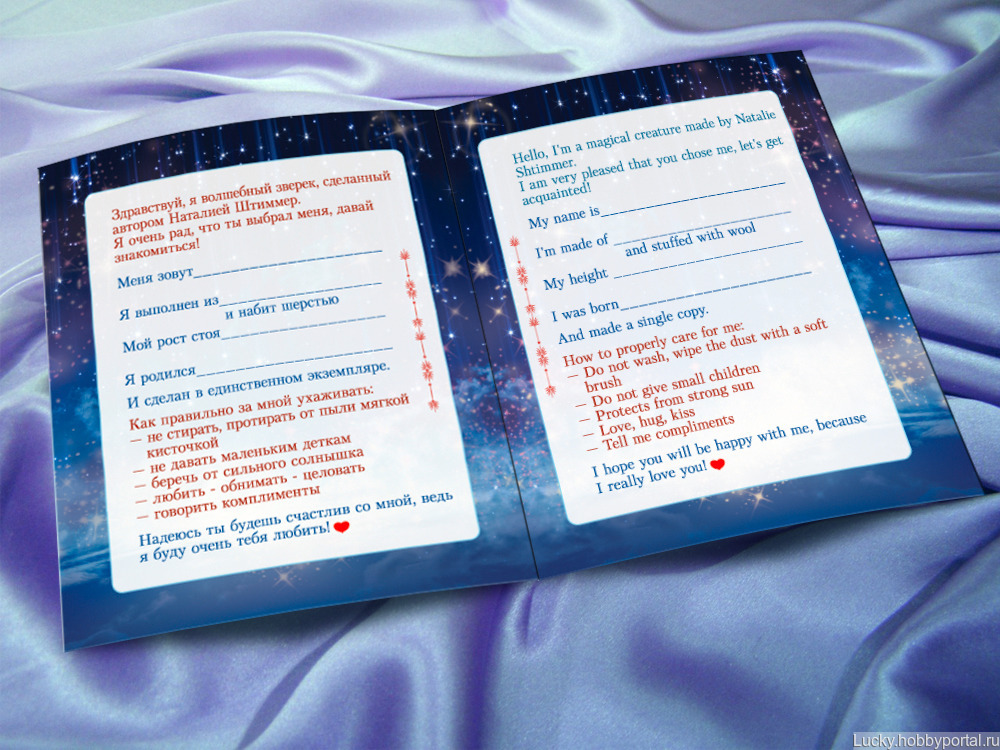 Здравствуй, я волшебный зверек, сделанный
автором Наталией Штиммер.
Я очень рад, что ты выбрал меня, давай
знакомиться!
Меня зовут_______________________
Я выполнен из____________________
и набит шерстью
Мой рост стоя____________________
Я родился________________________
И сделан в единственном экземпляре.
Как правильно за мной ухаживать:
— не стирать, протирать от пыли мягкой
кисточкой
— не давать маленьким деткам
— беречь от сильного солнышка
— любить - обнимать - целовать
— говорить комплименты
Надеюсь ты будешь счастлив со мной, ведь
я буду очень тебя любить!
Hello, I'm a magical creature made by Natalie
Shtimmer.
I am very pleased that you chose me, let's get
acquainted!
My name is_______________________
I'm made of ______________________
and stuffed with wool
My height ________________________
I was born________________________
And made a single copy.
How to properly care for me:
— Do not wash, wipe the dust with a soft
brush
— Do not give small children
— Protects from strong sun
— Love, hug, kiss
— Tell me compliments
I hope you will be happy with me, because
I really love you!
Lucky.hobbyportal.ru